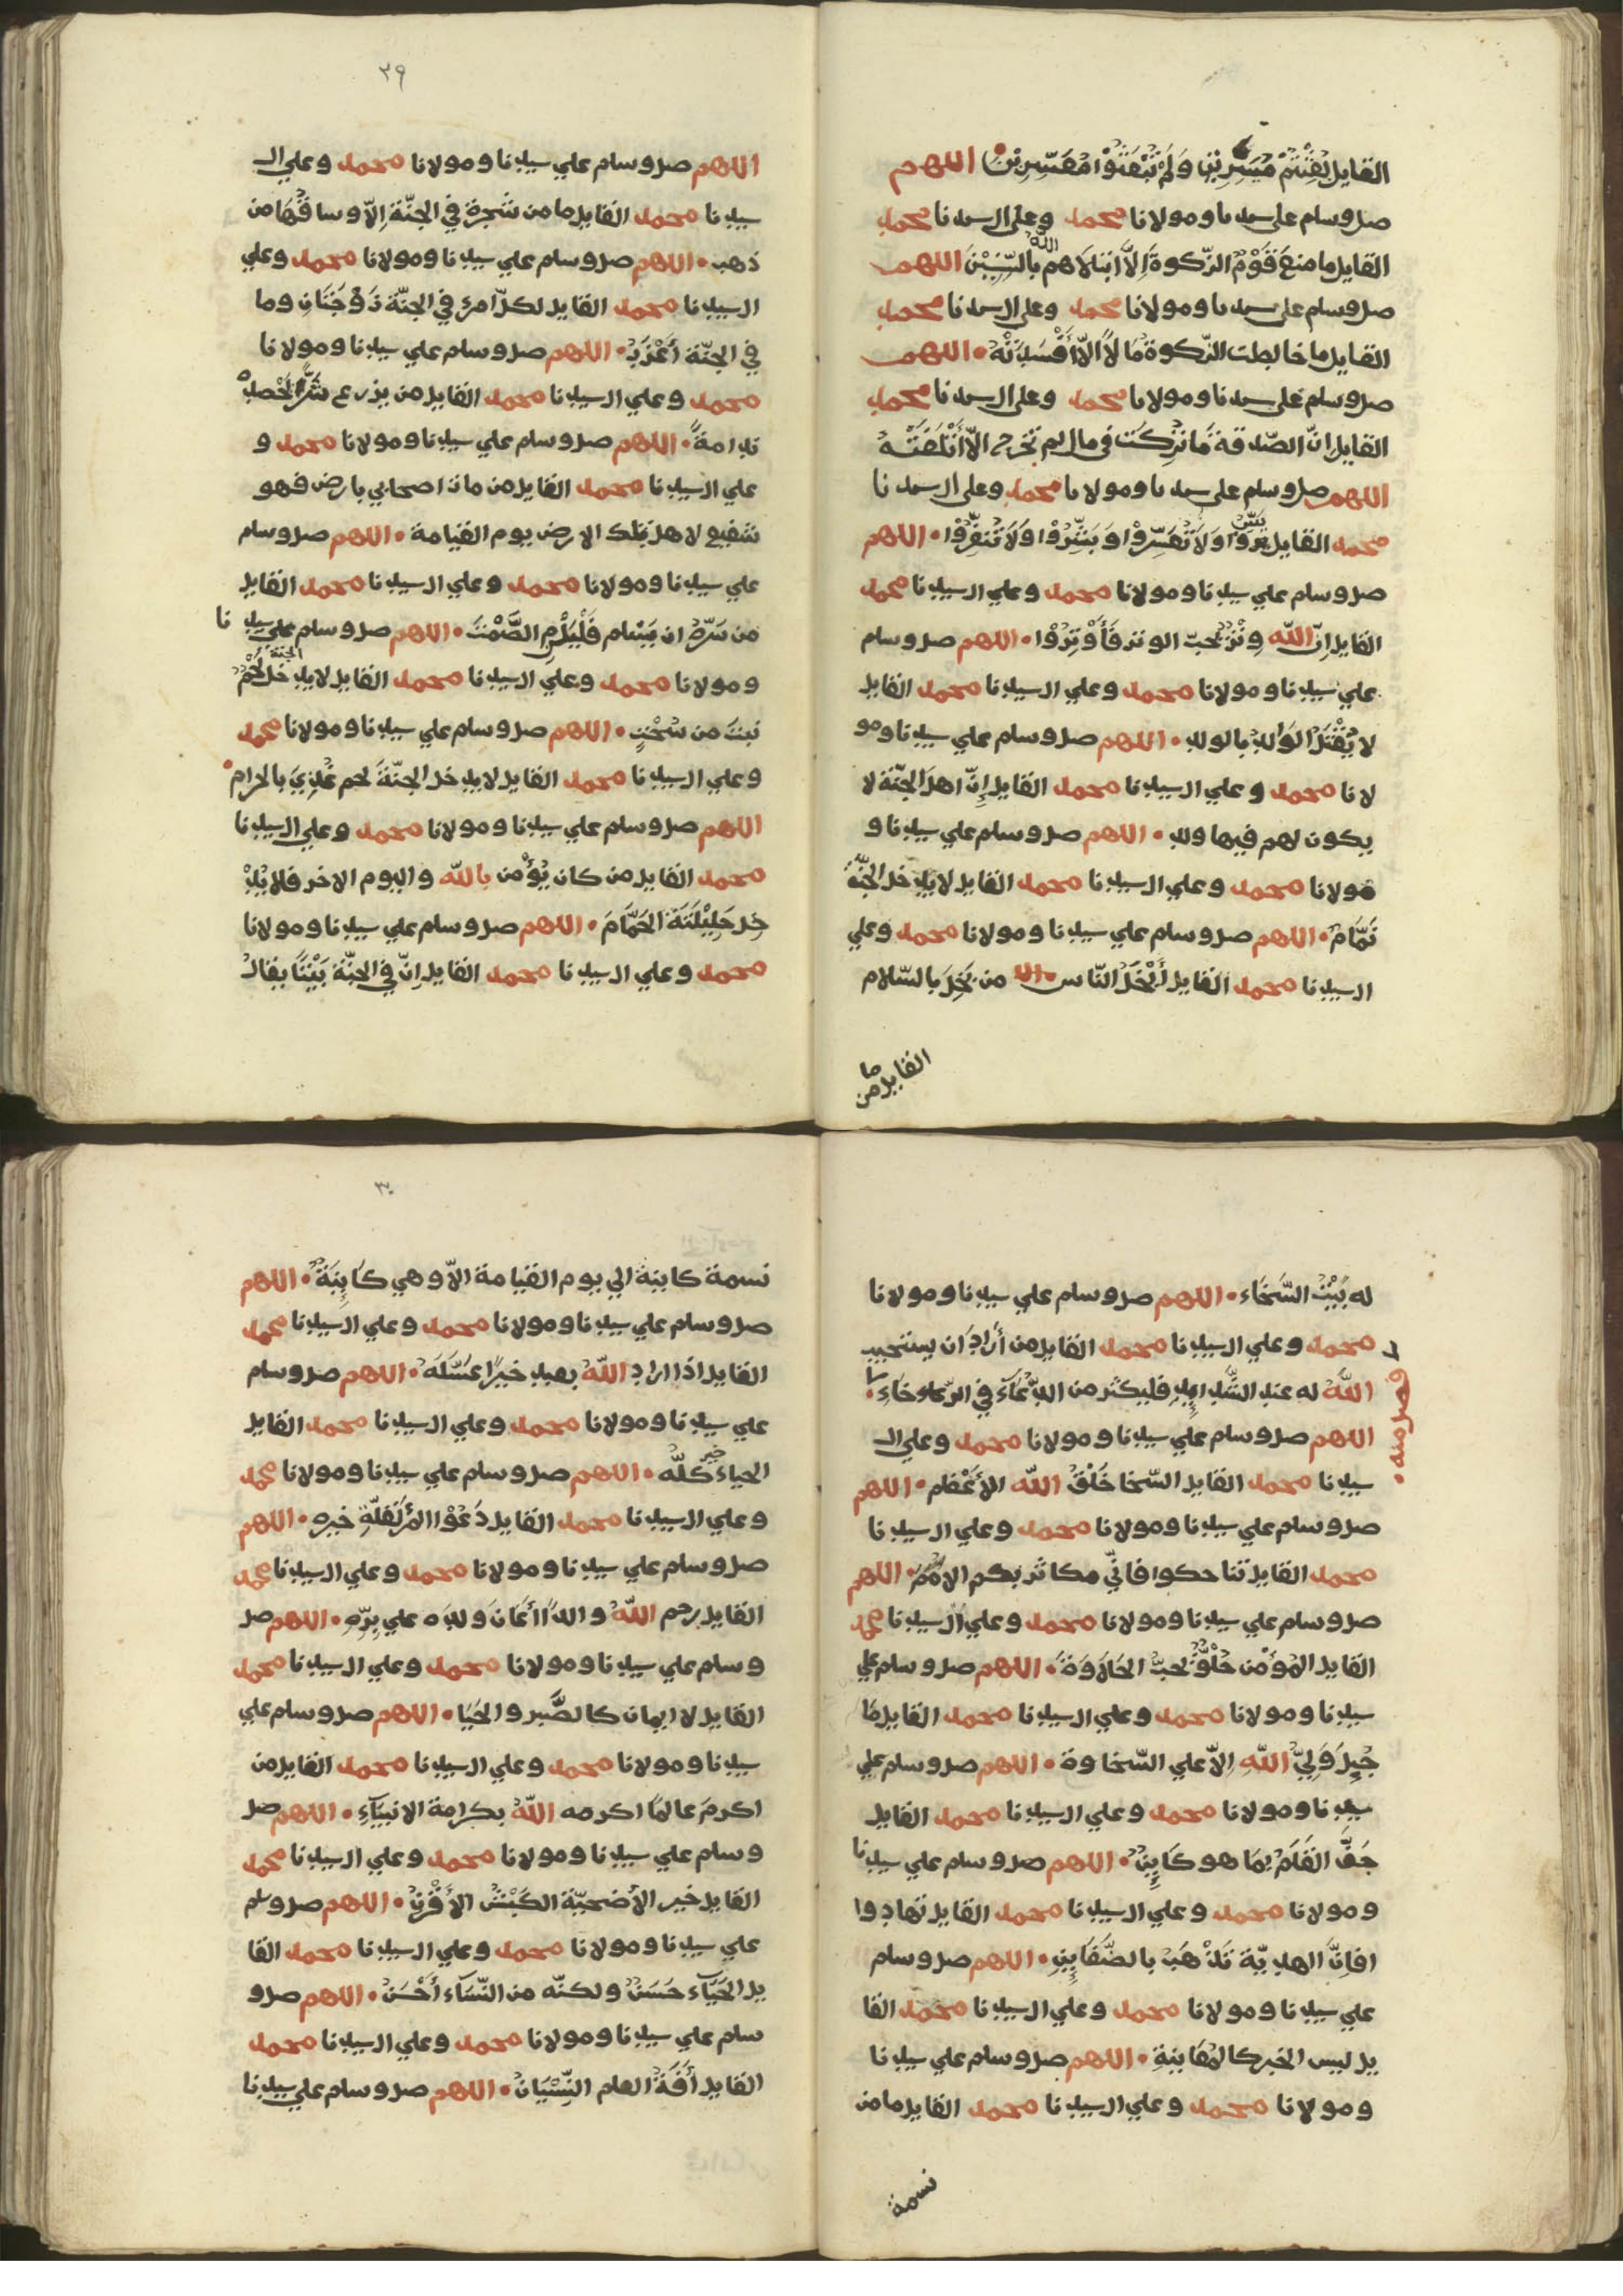 القايل بُعِثْتُمْ مُيَسِّرِيْنَ وَلَمْ تُبْعَثُوْا مُعَسِّرِيْنَ اللهم
صل وسلم على سيدنا ومولانا محمد وعلى ال سيدنا محمد
القايل ما منعَ قَوْمٌ الزّكوةَ إِلَّا ابتلاهم اللّهُ بالسِّنِيْنَ اللهم
صل وسلم على سيدنا ومولانا محمد وعلى ال سيدنا محمد
القايل ما خالطت الزّكوةُ مَالاً الّا أَفْسَدَتْهُ • اللهم
صل وسلم على سيدنا ومولانا محمد وعلى ال سيدنا محمد
القايل انّ الصّدقة مَا تُرِكَتْ في مال لم تخرج الّا أَتْلَفَتْهُ
اللهم صل وسلم على سيدنا ومولانا محمد وعلى ال سيدنا
محمد القايل يَسِّرُوْا وَلَا تُعَسِّرُوْا وَبَشِّرُوْا وَلَا تُنَفِّرُوْا • اللهم
صل وسلم علي سيدنا ومولانا محمد وعلي ال سيدنا محمد
القايل إنّ اللّه وِتْرٌ يُحبّ الوتر فَأَوْتِرُوْا • اللهم صل وسلم
علي سيدنا ومولانا محمد وعلي ال سيدنا محمد القايل
لا يُقْتَلُ الوَالِدُ بالولد • اللهم صل وسلم علي سيدنا ومو
لانا محمد وعلي ال سيدنا محمد القايل إِنّ اهل الجنّة لا
يكون لهم فيها ولد • اللهم صل وسلم علي سيدنا و
مولانا محمد وعلي ال سيدنا محمد القايل لا يدخل الجنّةَ
نَمَّامٌ • اللهم صل وسلم علي سيدنا ومولانا محمد وعلي
ال سيدنا محمد القايل أَبْخَلُ النّاس من بَخِلَ بالسّلام
القايل ما من
٢٩
اللهم صل وسلم علي سيدنا ومولانا محمد وعلي ال
سيدنا محمد القايل ما من شجرة في الجنّة إلّا وساقُهَا من
ذهب • اللهم صل وسلم علي سيدنا ومولانا محمد وعلي
ال سيدنا محمد القايل لكلّ امرئ في الجنّة زَوْجَتَانِ وما
في الجنّة أَعْزَبُ • اللهم صل وسلم علي سيدنا ومولانا
محمد وعلي ال سيدنا محمد القايل من يزرع شَرًّا يَحْصِدْ
ندامةً • اللهم صل وسلم علي سيدنا ومولانا محمد و
علي ال سيدنا محمد القايل من مات من اصحابي بارض فهو
شفيع لاهل تلك الارض يوم القيامة • اللهم صل وسلم
علي سيدنا ومولانا محمد وعلي ال سيدنا محمد القايل
من سَرّهُ ان يَسْلم فَلْيَلْزَمِ الصَّمْتَ • اللهم صل وسلم علي سيدنا
ومولانا محمد وعلي ال سيدنا محمد القايل لا يدخل الجنّة لَحْمٌ
نبتَ من سُحْتٍ • اللهم صل وسلم علي سيدنا ومولانا محمد
وعلي ال سيدنا محمد القايل لا يدخل الجنّةَ لحم غُذِيَ بالحرام •
اللهم صل وسلم علي سيدنا ومولانا محمد وعلي ال سيدنا
محمد القايل من كان يُؤْمن باللّه واليوم الاخر فلا يُدْ
خِل حَلِيْلَتَهُ الحَمَّامَ • اللهم صل وسلم علي سيدنا ومولانا
محمد وعلي ال سيدنا محمد القايل إنّ في الجنّة بَيْتًا يقالُ
له بَيْتُ السَّخَاء • اللهم صل وسلم علي سيدنا ومولانا
محمد وعلي ال سيدنا محمد القايل من أَرَادَ ان يستجيب
اللّهُ له عند الشَّدايِدِ فليكثر من الدُّعَاءِ في الرّخاءِ •
اللهم صل وسلم علي سيدنا ومولانا محمد وعلي ال
سيدنا محمد القايل السّخا خَلْقُ اللّه الأَعْظم • اللهم
صل وسلم علي سيدنا ومولانا محمد وعلي ال سيدنا
محمد القايل تناكحوا فاني مكاثر بكم الامَمَ • اللهم
صل وسلم علي سيدنا ومولانا محمد وعلي ال سيدنا محمد
القايل المؤمن حُلْوٌ يُحبّ الحَلَاوَةَ • اللهم صل وسلم علي
سيدنا ومولانا محمد وعلي ال سيدنا محمد القايل مَا
جُبِلَ وَلِيُّ اللّهِ إلّا علي السّخاوة • اللهم صل وسلم علي
سيدنا ومولانا محمد وعلي ال سيدنا محمد القايل
جَفَّ القَلَمُ بِمَا هو كَايِنٌ • اللهم صل وسلم علي سيدنا
ومولانا محمد وعلي ال سيدنا محمد القايل تهادوا
فإِنَّ الهديّة تَذْهَبُ بالضَّغَايِنِ • اللهم صل وسلم
علي سيدنا ومولانا محمد وعلي ال سيدنا محمد القا
يل ليس الخبر كالمُعَاينةِ • اللهم صل وسلم علي سيدنا
ومولانا محمد وعلي ال سيدنا محمد القايل ما من
نسمة
٣٠
نسمة كاينة الي يوم القيامة الّا وهي كَايِنَةٌ • اللهم
صل وسلم علي سيدنا ومولانا محمد وعلي ال سيدنا محمد
القايل اذا اراد اللّهُ بعبد خيرًا عَسَّلَهُ • اللهم صل وسلم
علي سيدنا ومولانا محمد وعلي ال سيدنا محمد القايل
الحياء خير كلّه • اللهم صل وسلم علي سيدنا ومولانا محمد
وعلي ال سيدنا محمد القايل دَعُوْا لقلّةِ خيره • اللهم
صل وسلم علي سيدنا ومولانا محمد وعلي ال سيدنا محمد
القايل رحم اللّهُ والدًا أَعَانَ وَلَدَه علي بِرِّهِ • اللهم صل
وسلم علي سيدنا ومولانا محمد وعلي ال سيدنا محمد
القايل لا ايمان كالصَّبر والحَيَا • اللهم صل وسلم علي
سيدنا ومولانا محمد وعلي ال سيدنا محمد القايل من
اكرمَ عالمًا اكرمه اللّهُ بكرامة الانبيَاءِ • اللهم صل
وسلم علي سيدنا ومولانا محمد وعلي ال سيدنا محمد
القايل خير الأضحيّة الكَبْشُ الأَقْرَنُ • اللهم صل وسلم
علي سيدنا ومولانا محمد وعلي ال سيدنا محمد القا
يل الحَيَاء حَسَنٌ ولكنّه من النّسَاء أَحْسَنُ • اللهم صل و
سلم علي سيدنا ومولانا محمد وعلي ال سيدنا محمد
القايل أَفَةُ العلم النِّسْيَانُ • اللهم صل وسلم علي سيدنا